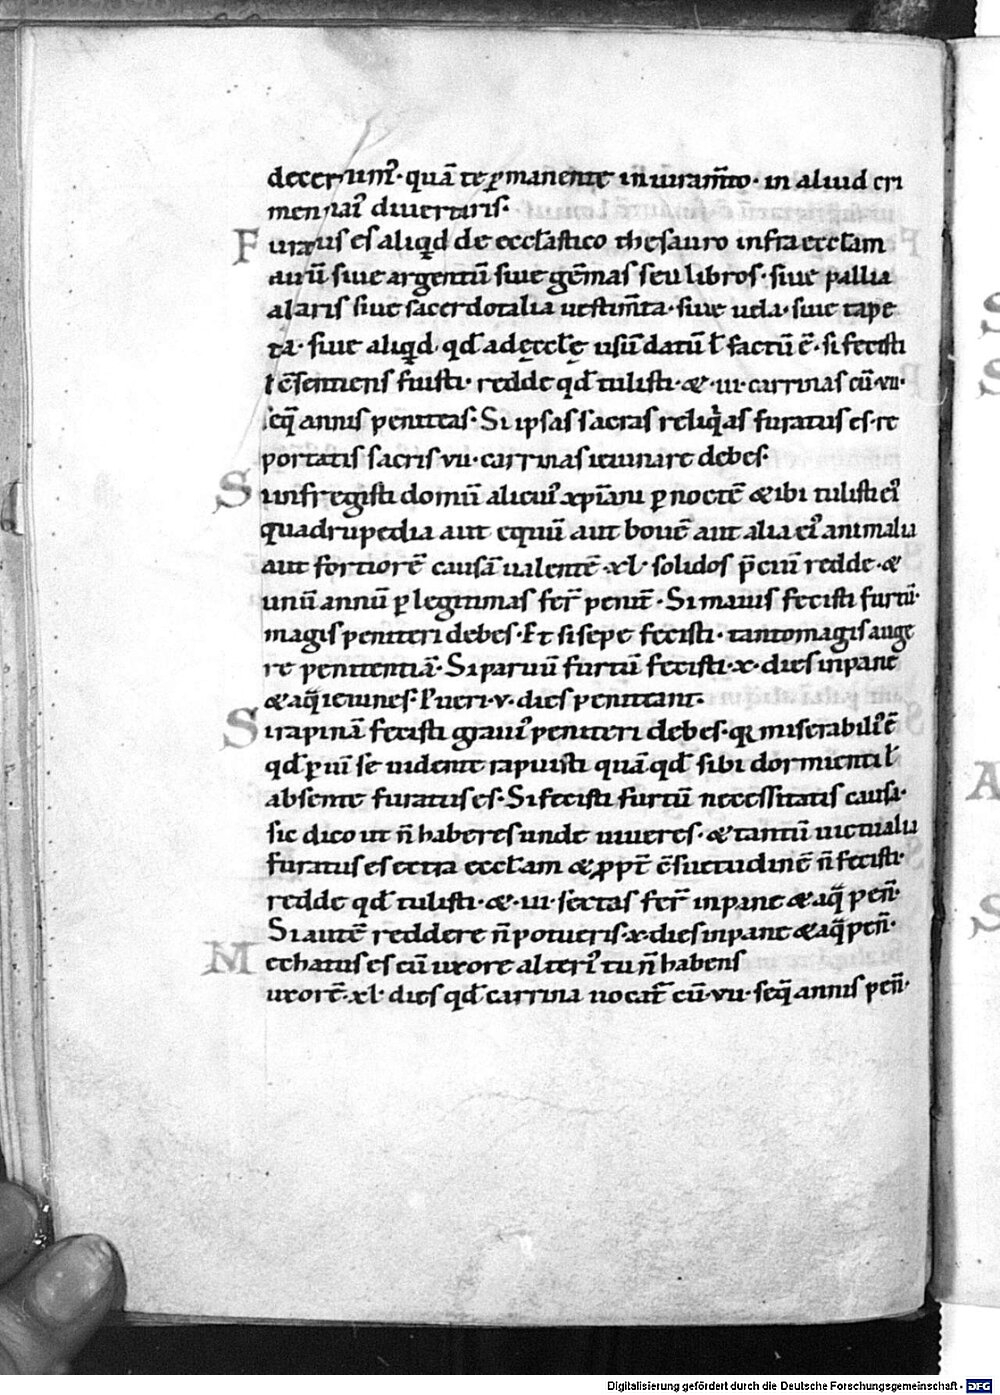 decernim᷒· quā te ꝑmanente in iuram̄to· in aliud cri
men n̄ai᷒ diuertaris·
Furatus es aliqd̄ de eccl̄astico thesauro infra eccl̄am
aurū siue argentū siue gēmas seu libros· siue pallia
alaris siue sacerdotalia uestim̄ta· siue uela· siue tape
ta· siue aliqd̄· qd̄ ad ęccl̄ę usū datū ł factū ē· si fecisti
ł c̄sentiens fuisti· redde qd̄ tulisti· & ·iii· carrinas cū ·vii·
seq̄ annis peniteas· Si ipsas sacras reliq̇as furatus es· re
portatis sacris vii· carrinas ieiunare debes·
Si infregisti domū alicui᷒ xp̄iani ꝑ noctē & ibi tulisti ei᷒
quadrupedia aut equū aut bouē aut alia ei᷒ animalia
aut fortiorē causā ualentē ·xl· solidos p̄ciū redde· &
unū annū ꝑ legitimas fer̄ penit̄· Si maius fecisti furtū·
magis peniteri debes· Et si sepe fecisti· tanto magis auge
re penitentiā· Si paruū furtū fecisti ·x· dies in pane
& aq̄ ieiunes· Pueri ·v· dies peniteant·
Si rapinā fecisti graui᷒ peniteri debes· qꝛ miserabili᷒ ē
qd̄ ꝑ uim̄ se uidente rapuisti quā qd̄ sibi dormienti ł
absente furatus es· Si fecisti furtū necessitatis causa·
sic dico ut n̄ haberes unde uiueres· & tantū uictualia
furatus es extra eccl̄am & ꝓpt̄ c̄suetudinē n̄ fecisti·
redde qd̄ tulisti· & ·iii· sextas fer̄ in pane & aq̄ pen̄·
Si autē reddere n̄ potueris ·x· dies in pane & aq̄ pen̄·
Mechatus es cū uxore alteri᷒ tu n̄ habens
uxorē ·xl· dies qd̄ carrina uocat̄ cū ·vii· seq̄ annis pen̄·
Digitalisierung gefördert durch die Deutsche Forschungsgemeinschaft - DFG